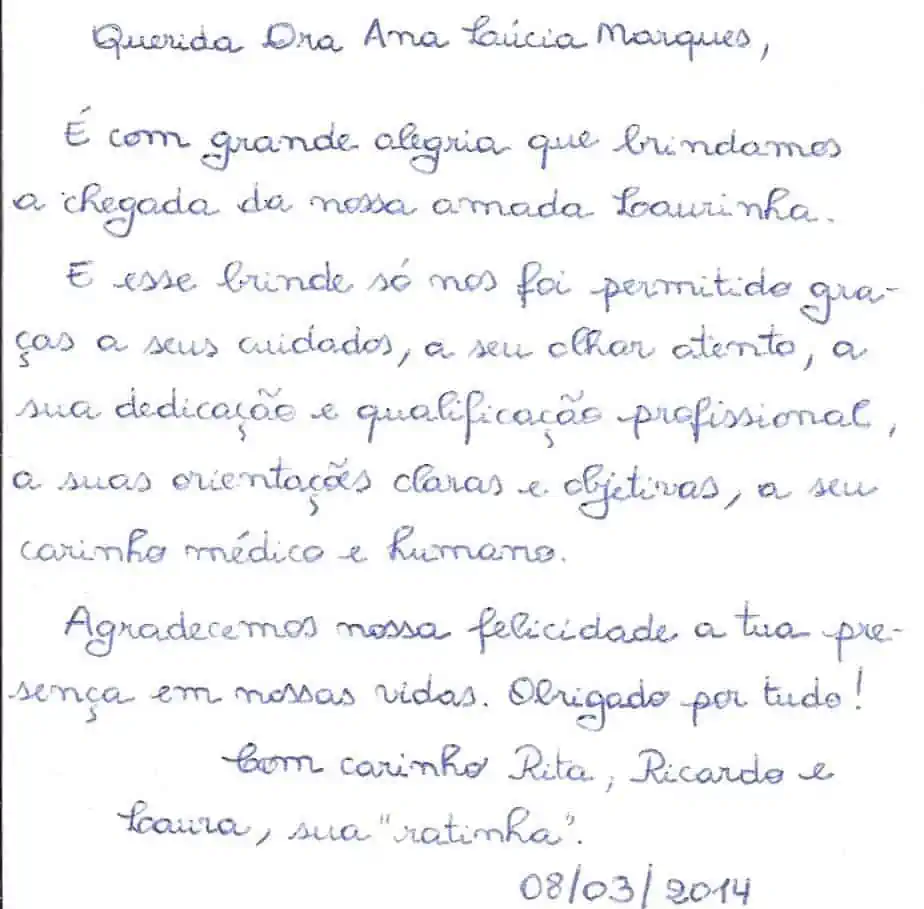 Querida Dra Ana Laúcia Marques,
É com grande alegria que brindamos
a chegada da nossa amada Laurinha.
E esse brinde só nos foi permitido gra-
ças a seus cuidados, a seu olhar atento, a
sua dedicação e qualificação profissional,
a suas orientações claras e objetivas, a seu
carinho médico e humano.
Agradecemos nossa felicidade a tua pre-
sença em nossas vidas. Obrigado por tudo!
Com carinho Rita, Ricardo e
Laura, sua "ratinha".
08/03/2014